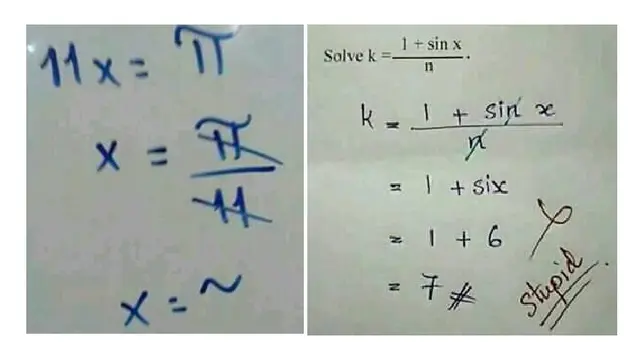 11x = π
x = π/11
x = ~
Solve k = (1 + sin x)/n .
k = (1 + sin x)/n
= 1 + six
= 1 + 6
= 7 #
Stupid